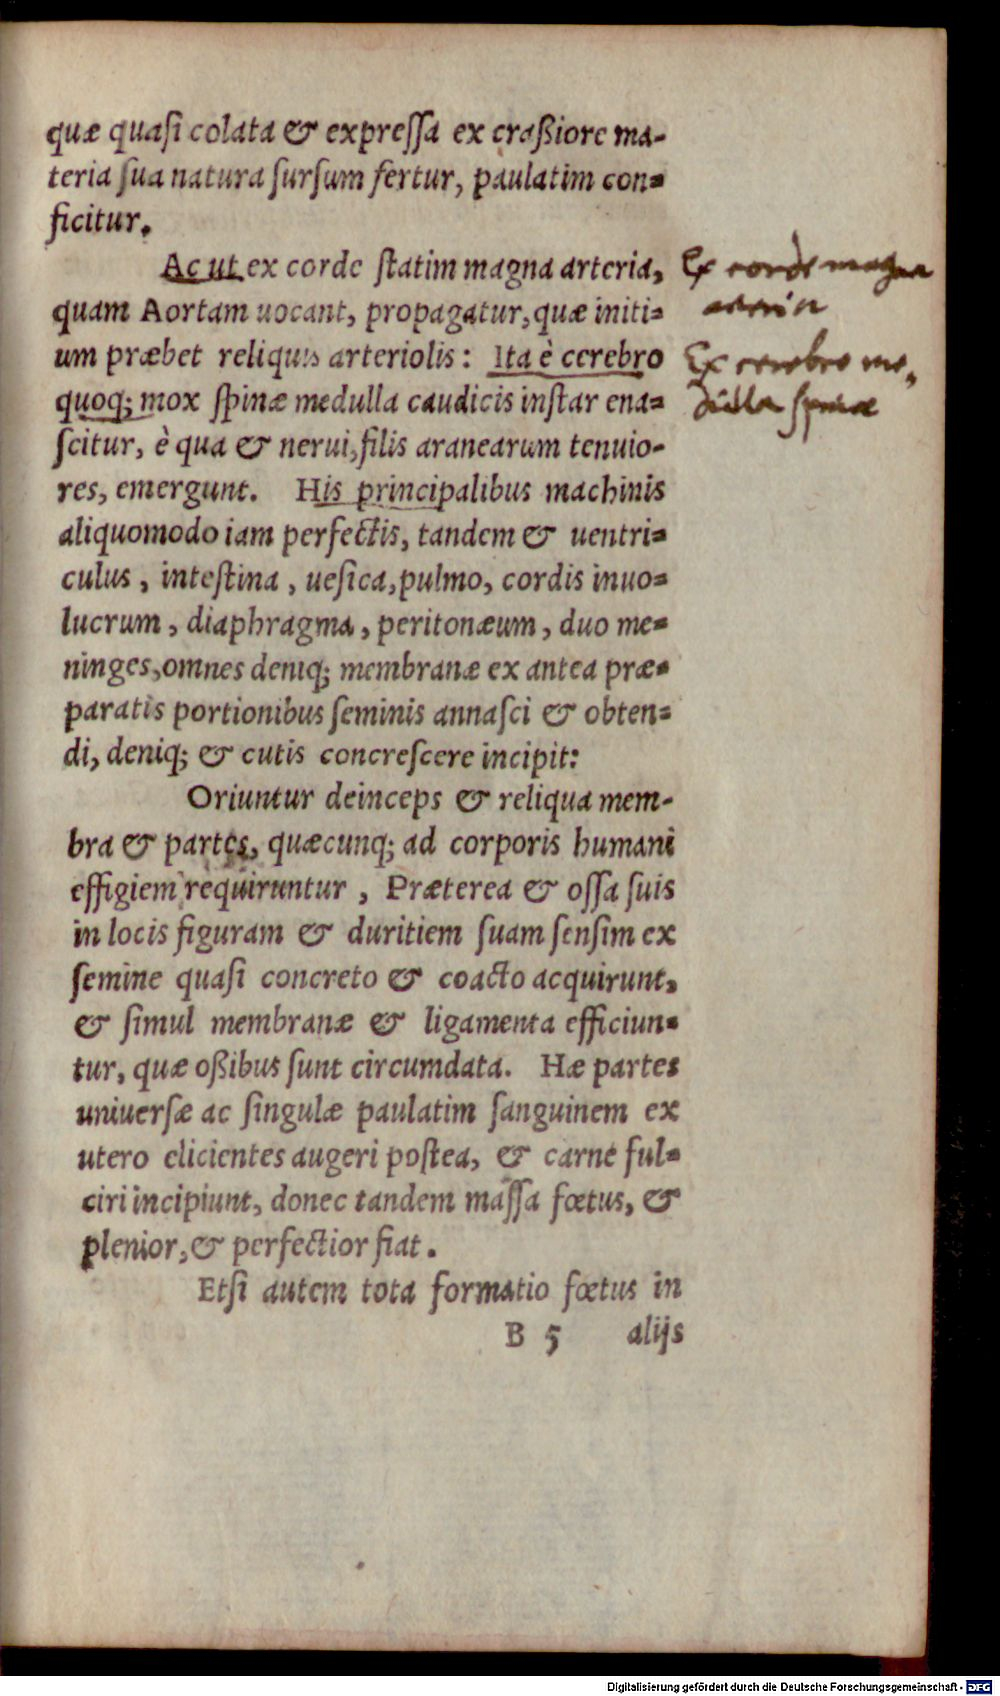 quæ quaſi colata & expreſſa ex craßiore ma-
teria ſua natura ſurſum fertur, paulatim con=
ficitur.
Ac ut ex corde ſtatim magna arteria,
quam Aortam uocant, propagatur, quæ initi=
um præbet reliquis arteriolis: Ita è cerebro
quoq; mox ſpinæ medulla caudicis inſtar ena=
ſcitur, è qua & nerui, filis aranearum tenuio-
res, emergunt. His principalibus machinis
aliquomodo iam perfectis, tandem & uentri=
culus, inteſtina, ueſica, pulmo, cordis inuo=
lucrum, diaphragma, peritonæum, duo me=
ninges, omnes deniq; membranæ ex antea præ=
paratis portionibus ſeminis annaſci & obten=
di, deniq; & cutis concreſcere incipit:
Oriuntur deinceps & reliqua mem-
bra & partes, quæcunq; ad corporis humani
effigiem requiruntur, Præterea & oſſa ſuis
in locis figuram & duritiem ſuam ſenſim ex
ſemine quaſi concreto & coacto acquirunt,
& ſimul membranæ & ligamenta efficiun=
tur, quæ oßibus ſunt circumdata. Hæ partes
uniuerſæ ac ſingulæ paulatim ſanguinem ex
utero elicientes augeri poſtea, & carne ful=
ciri incipiunt, donec tandem maſſa fœtus, &
plenior, & perfectior fiat.
Etſi autem tota formatio fœtus in
B 5 alijs
Ex corde magna
arteria
Ex cerebro me,
dulla spinæ
Digitalisierung gefördert durch die Deutsche Forschungsgemeinschaft - DFG